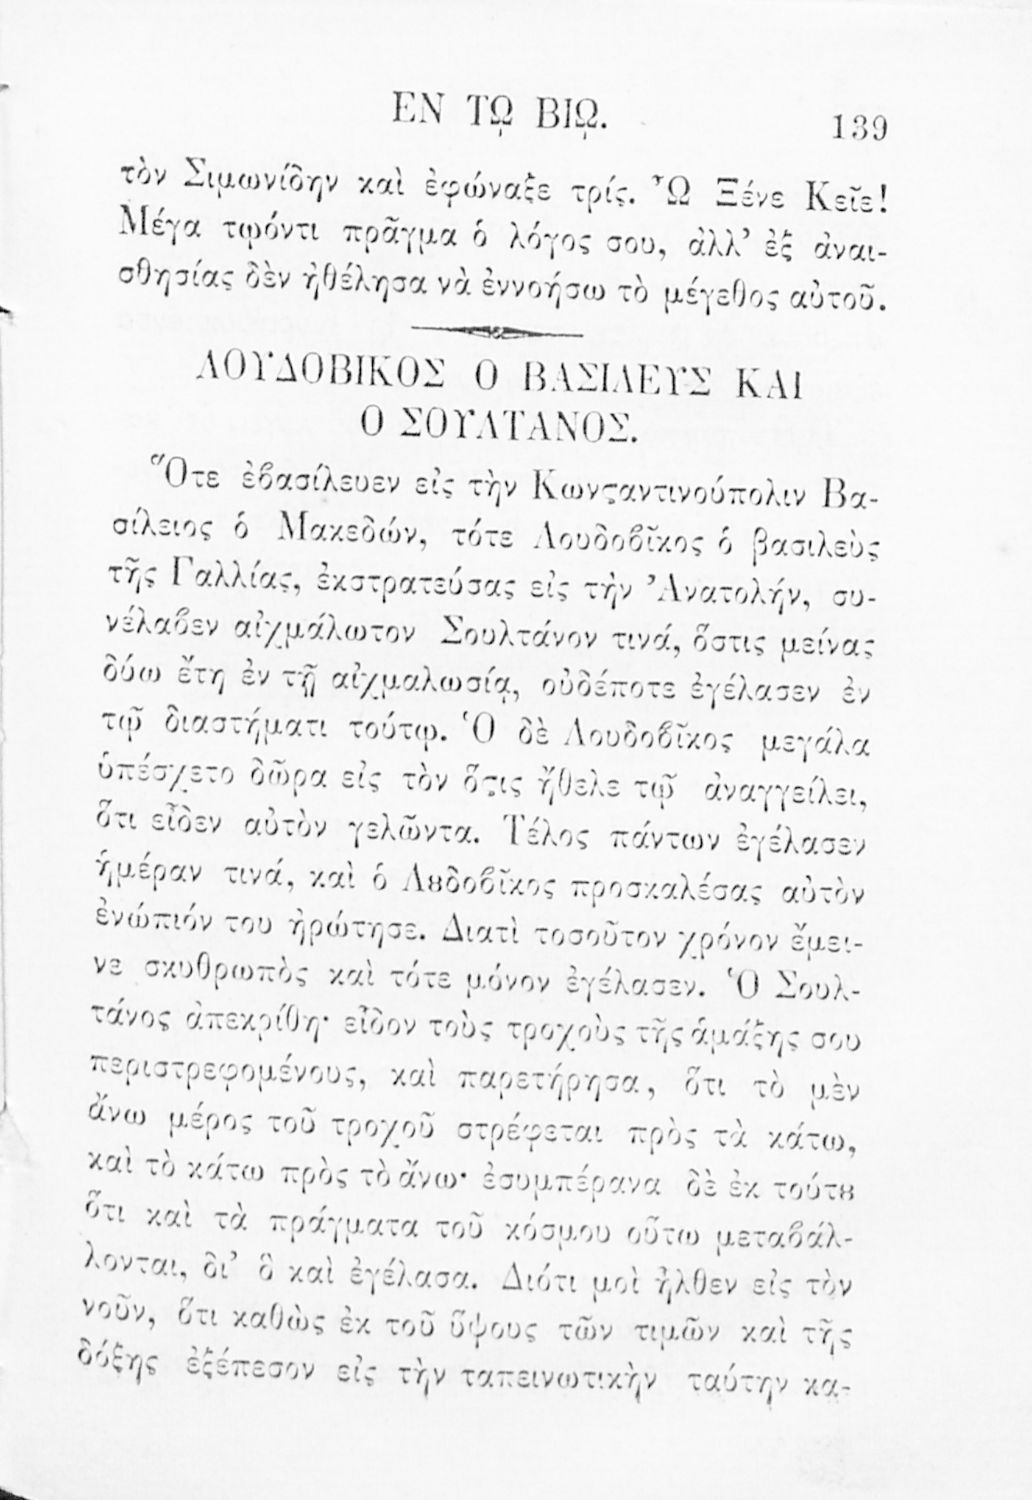 ΕΝ Τῼ ΒΙῼ. 139
τὸν Σιμωνίδην καὶ ἐφώναξε τρίς. Ὦ Ξένε Κεῖε!
Μέγα τῳόντι πρᾶγμα ὁ λόγος σου, ἀλλ' ἐξ ἀναι-
σθησίας δὲν ἠθέλησα νὰ ἐννοήσω τὸ μέγεθος αὐτοῦ.
ΛΟΥΔΟΒΙΚΟΣ Ο ΒΑΣΙΛΕΥΣ ΚΑΙ
Ο ΣΟΥΛΤΑΝΟΣ.
Ὅτε ἐβασίλευεν εἰς τὴν Κωνϛαντινούπολιν Βα-
σίλειος ὁ Μακεδών, τότε Λουδοβῖκος ὁ βασιλεὺς
τῆς Γαλλίας, ἐκστρατεύσας εἰς τὴν Ἀνατολήν, συ-
νέλαβεν αἰχμάλωτον Σουλτάνον τινά, ὅστις μείνας
δύω ἔτη ἐν τῇ αἰχμαλωσίᾳ, οὐδέποτε ἐγέλασεν ἐν
τῷ διαστήματι τούτῳ. Ὁ δὲ Λουδοβῖκος μεγάλα
ὑπέσχετο δῶρα εἰς τὸν ὅϛις ἤθελε τῷ ἀναγγείλει,
ὅτι εἶδεν αὐτὸν γελῶντα. Τέλος πάντων ἐγέλασεν
ἡμέραν τινά, καὶ ὁ Λȣδοβῖκος προσκαλέσας αὐτὸν
ἐνώπιόν του ἠρώτησε. Διατὶ τοσοῦτον χρόνον ἔμει-
νε σκυθρωπὸς καὶ τότε μόνον ἐγέλασεν. Ὁ Σουλ-
τάνος ἀπεκρίθη· εἶδον τοὺς τροχοὺς τῆς ἁμάξης σου
περιστρεφομένους, καὶ παρετήρησα, ὅτι τὸ μὲν
ἄνω μέρος τοῦ τροχοῦ στρέφεται πρὸς τὰ κάτω,
καὶ τὸ κάτω πρὸς τὸ ἄνω· ἐσυμπέρανα δὲ ἐκ τούτȣ
ὅτι καὶ τὰ πράγματα τοῦ κόσμου οὕτω μεταβάλ-
λονται, δι' ὃ καὶ ἐγέλασα. Διότι μοὶ ἦλθεν εἰς τὸν
νοῦν, ὅτι καθὼς ἐκ τοῦ ὕψους τῶν τιμῶν καὶ τῆς
δόξης ἐξέπεσον εἰς τὴν ταπεινωτικὴν ταύτην κα-